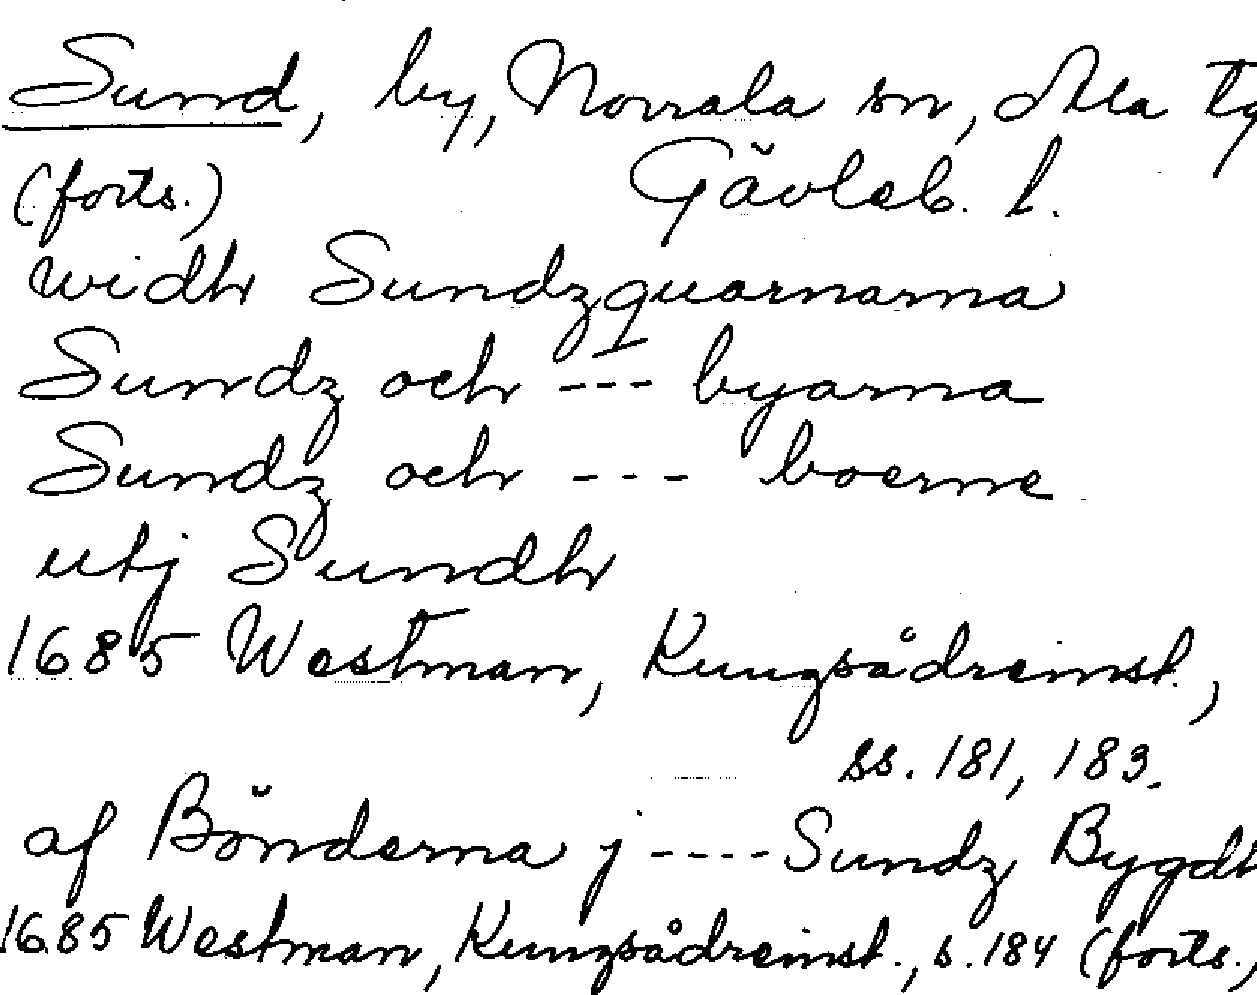 Sund, by, Norrala sn, Ala tg
(forts.) Gävleb. l.
widh Sundzquarnarna
Sundz och --- byarna
Sundz och --- boerne
utj Sundh
1685 Westman, Kungsådreinst.,
ss. 181, 183.
af Bönderna j ---- Sundz Bygdh
1685 Westman, Kungsådreinst., s. 184 (forts.)